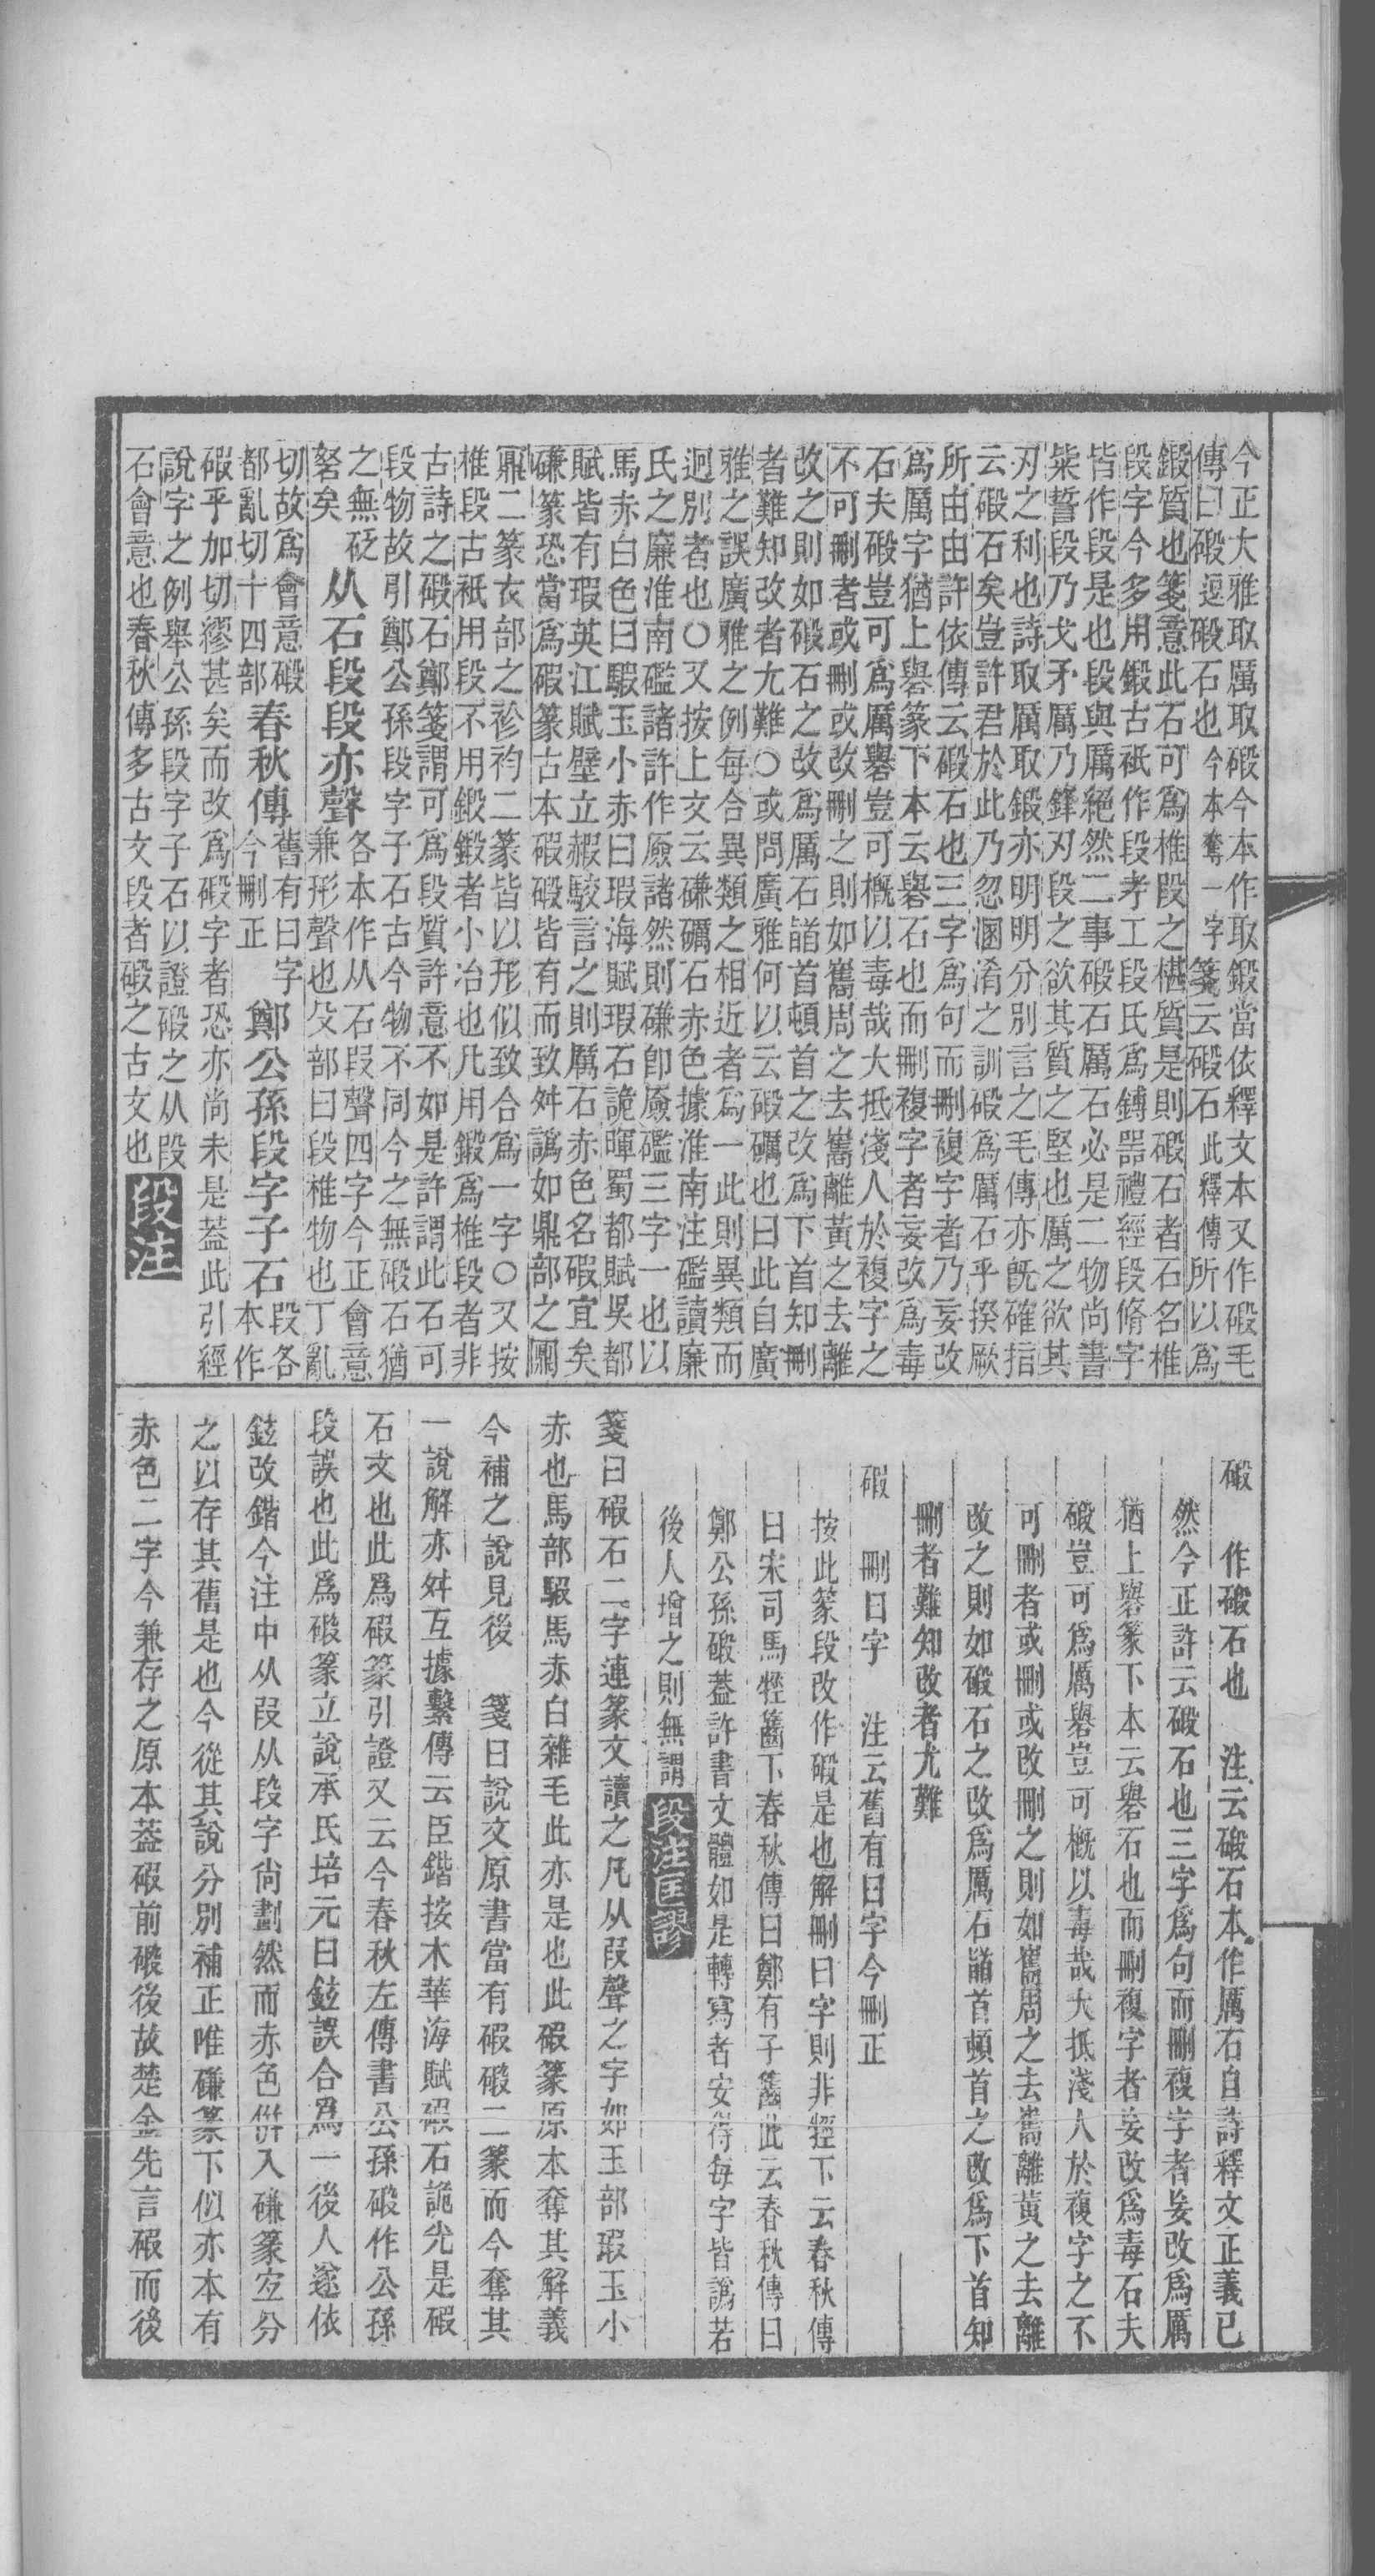 今正大雅取厲取碫今本作取鍛當依釋文本又作碫毛
傳曰碫逗碫石也今本奪一字箋云碫石此釋傳所以爲
鍛質也箋意此石可爲椎段之椹質是則碫石者石名椎
段字今多用鍛古衹作段考工段氏爲鎛器禮經段脩字
皆作段是也段與厲絕然二事碫石厲石必是二物尚書
粊誓段乃戈矛厲乃鋒刃段之欲其質之堅也厲之欲其
刃之利也詩取厲取鍛亦明明分別言之毛傳亦旣確指
云碫石矣豈許君於此乃忽溷淆之訓碫爲厲石乎揆厥
所由由許依傳云碫石也三字爲句而刪複字者乃妄改
爲厲字猶上礜篆下本云礜石也而刪複字者妄改爲毒
石夫碫豈可爲厲礜豈可槪以毒哉大抵淺人於複字之
不可刪者或刪或改刪之則如嶲周之去嶲離黃之去離
改之則如碫石之改爲厲石䭫首頓首之改爲下首知刪
者難知改者尤難○或問廣雅何以云碫礪也曰此自廣
雅之誤廣雅之例每合異類之相近者爲一此則異類而
迥別者也○又按上文云磏礪石赤色據淮南注䃴讀廉
氏之廉淮南䃴諸許作厱諸然則磏卽厱䃴三字一也以
馬赤白色曰騢玉小赤曰瑕海賦瑕石詭暉蜀都賦吳都
賦皆有瑕英江賦壁立赮駁言之則厲石赤色名碬宜矣
磏篆恐當爲碬篆古本碬碫皆有而致舛譌如鼎部之𪔅
鼏二篆衣部之袗袀二篆皆以形似致合爲一字○又按
椎段古衹用段不用鍛鍛者小冶也凡用鍛爲椎段者非
古詩之碫石鄭箋謂可爲段質許意不如是許謂此石可
段物故引鄭公孫段字子石古今物不同今之無碫石猶
之無砭砮矣从石段段亦聲各本作从石叚聲四字今正會意兼形聲也殳部曰段椎物也丁亂
切故爲會意碫都亂切十四部春秋傳舊有曰字今刪正鄭公孫段字子石段各本作
碬乎加切繆甚矣而改爲碫字者恐亦尚未是葢此引經
說字之例舉公孫段字子石以證碫之从段
石會意也春秋傳多古文段者碫之古文也段注
碫　作碫石也　注云碫石本作厲石自詩釋文正義已
然今正許云碫石也三字爲句而刪複字者妄改爲厲
猶上礜篆下本云礜石也而刪複字者妄改爲毒石夫
碫豈可爲厲礜豈可槪以毒哉大抵淺人於複字之不
可刪者或刪或改刪之則如嶲周之去嶲離黃之去離
改之則如碫石之改爲厲石䭫首頓首之改爲下首知
刪者難知改者尤難
碬　刪曰字　注云舊有曰字今刪正
按此篆段改作碫是也解刪曰字則非牼下云春秋傳
曰宋司馬牼䶵下春秋傳曰鄭有子䶵此云春秋傳曰
鄭公孫碫葢許書文體如是轉寫者安得每字皆譌若
後人增之則無謂段注匡謬
箋曰碬石二字連篆文讀之凡从叚聲之字如玉部瑕玉小
赤也馬部騢馬赤白雜毛此亦是也此碬篆原本奪其解義
今補之說見後　箋曰說文原書當有碬碫二篆而今奪其
一說解亦舛互據繫傳云臣鍇按木華海賦碬石詭光是碬
石文也此爲碬篆引證又云今春秋左傳書公孫碫作公孫
段誤也此爲碫篆立說承氏培元曰鉉誤合爲一後人遂依
鉉改鍇今注中从叚从段字尙劃然而赤色倂入磏篆宐分
之以存其舊是也今從其說分別補正唯磏篆下似亦本有
赤色二字今兼存之原本葢碬前碫後故楚金先言碬而後